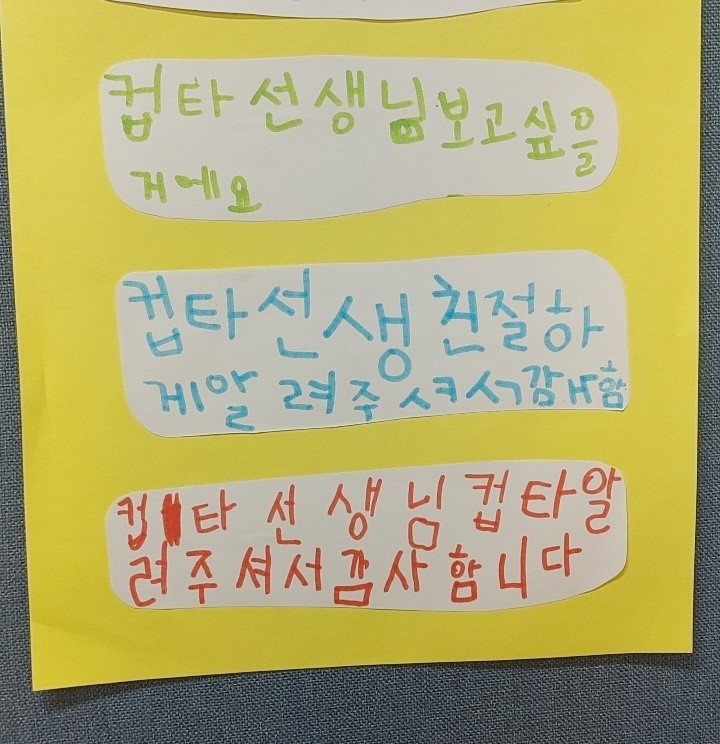 컵타 선생님보고싶을
거에요
컵타선생친절하
게알려주셔서감사함
컵타 선생님컵타알
려주셔서감사합니다